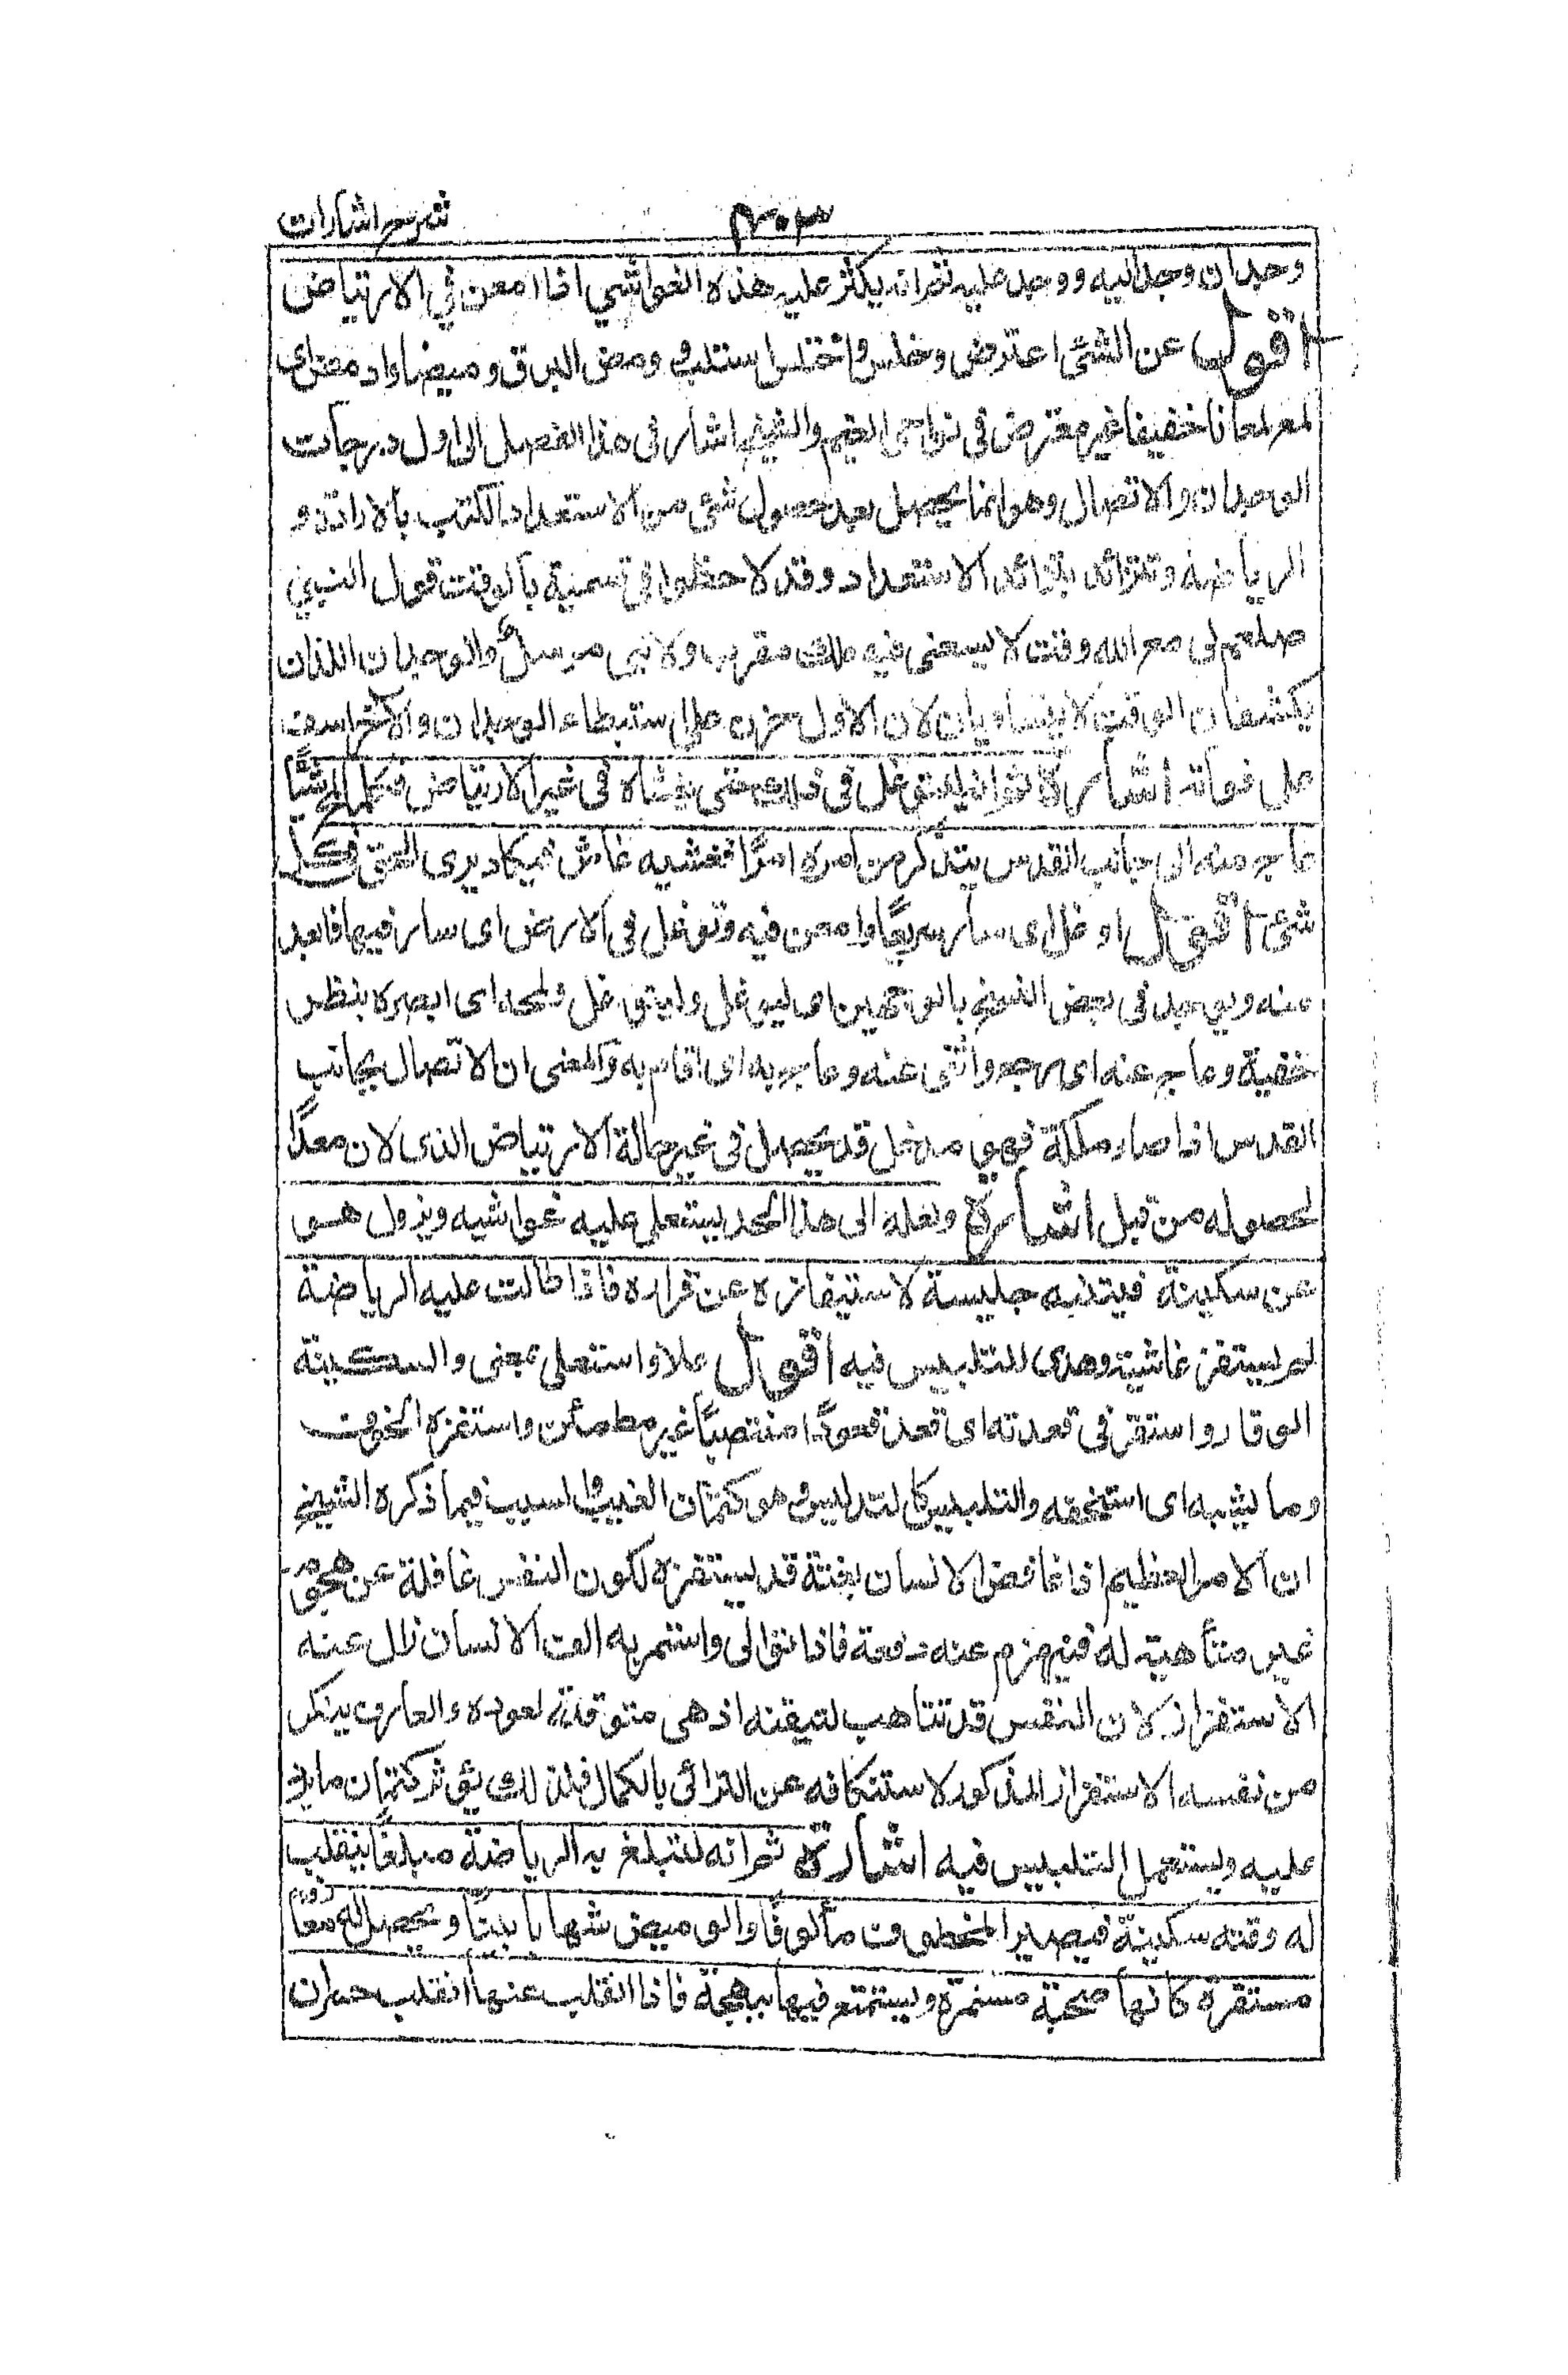 شرح اشارات
٣٠٣
وجدان وجد اليه ووجد عليه ثم انه يكثر عليه هذه الغواشي اذا امعن في الارتياض
اقول عن الشئ اعترض وخلس واختلس استلب و ومض البرق وميضا واومض اى
لمع لمعانا خفيفا غير معترض فى نواحى الغيم والشيخ اشار فى هذا الفصل الى اول درجات
الوجدان والاتصال وهو انما يحصل بعد حصول شئ من الاستعداد المكتسب بالارادة و
الرياضة وتتزائد بتزائد الاستعداد وقد لاحظوا فى تسمية بالوقت قول النبي
صلعم لى مع الله وقت لا يسعنى فيه ملك مقرب ولا نبى مرسل والوجدان اللذان
يكتنفان الوقت لا يتساويان لان الاول حزن على استبطاء الوجدان والاخر اسف
على فواته اشارة ثم انه ليتوغل فى ذلك حتى يغشاه فى غير الارتياض فكلما لمح شيئا
عاج منه الى جانب القدس يتذكر من امره امرا فغشيه غاش فيكاد يرى الحق فى كل
شئ اقول اوغل اى سار سريعا وامعن فيه وتوغل فى الارض اى سار فيها فابعد
منه ويوجد فى بعض النسخ بالوجهين اى ليوغل وليتوغل ولمحه اى ابصره بنظر
خفية وعاج عنه اى رجع وانثنى عنه وعاج به اى اقام به والمعنى ان الاتصال بجانب
القدس اذا صار ملكة فهو مدخل قد يحصل فى غير حالة الارتياض الذى لان معدا
لحصوله من قبل اشارة ولعله الى هذا الحد يستعلى عليه غواشيه ويزول هو
عن سكينة فيتنبه جليسة لاستيفازه عن قراره فاذا طالت عليه الرياضة
لم يستفز غاشية وهدى للتلبيس فيه اقول علا واستعلى بمعنى والسكينة
الوقار واستقر فى قعدته اى قعد قعودا منتصبا غير مطمئن واستفزه الخوف
وما يشبه اى استخفه والتلبيس كالتدليس وهو كتمان العيب والسبب فيما ذكره الشيخ
ان الامر العظيم اذا غافص الانسان بغتة قد يستفزه لكون النفس غافلة عن هجوم
غير متأهبة له فينهزم عنه دفعة فاذا توالى واستمر به الف الانسان زال عنه
الاستفزاز لان النفس قد تتاهب لتيقنه اذ هى متوقعة لعوده والعارف ينكر
من نفسه الاستفزاز المذكور لاستنكافه عن الترائى بالكمال فلذلك يؤثر كتمان ما يرد
عليه ويستعمل التلبيس فيه اشارة ثم انه لتبلغ به الرياضة مبلغا ينقلب
له وقته سكينة فيصير المخطوف مألوفا والوميض شهابا بينا ويحصل له معارفة
مستقرة كانها صحبة مستمرة ويستمتع فيها ببهجة فاذا انقلب عنها انقلب حيران